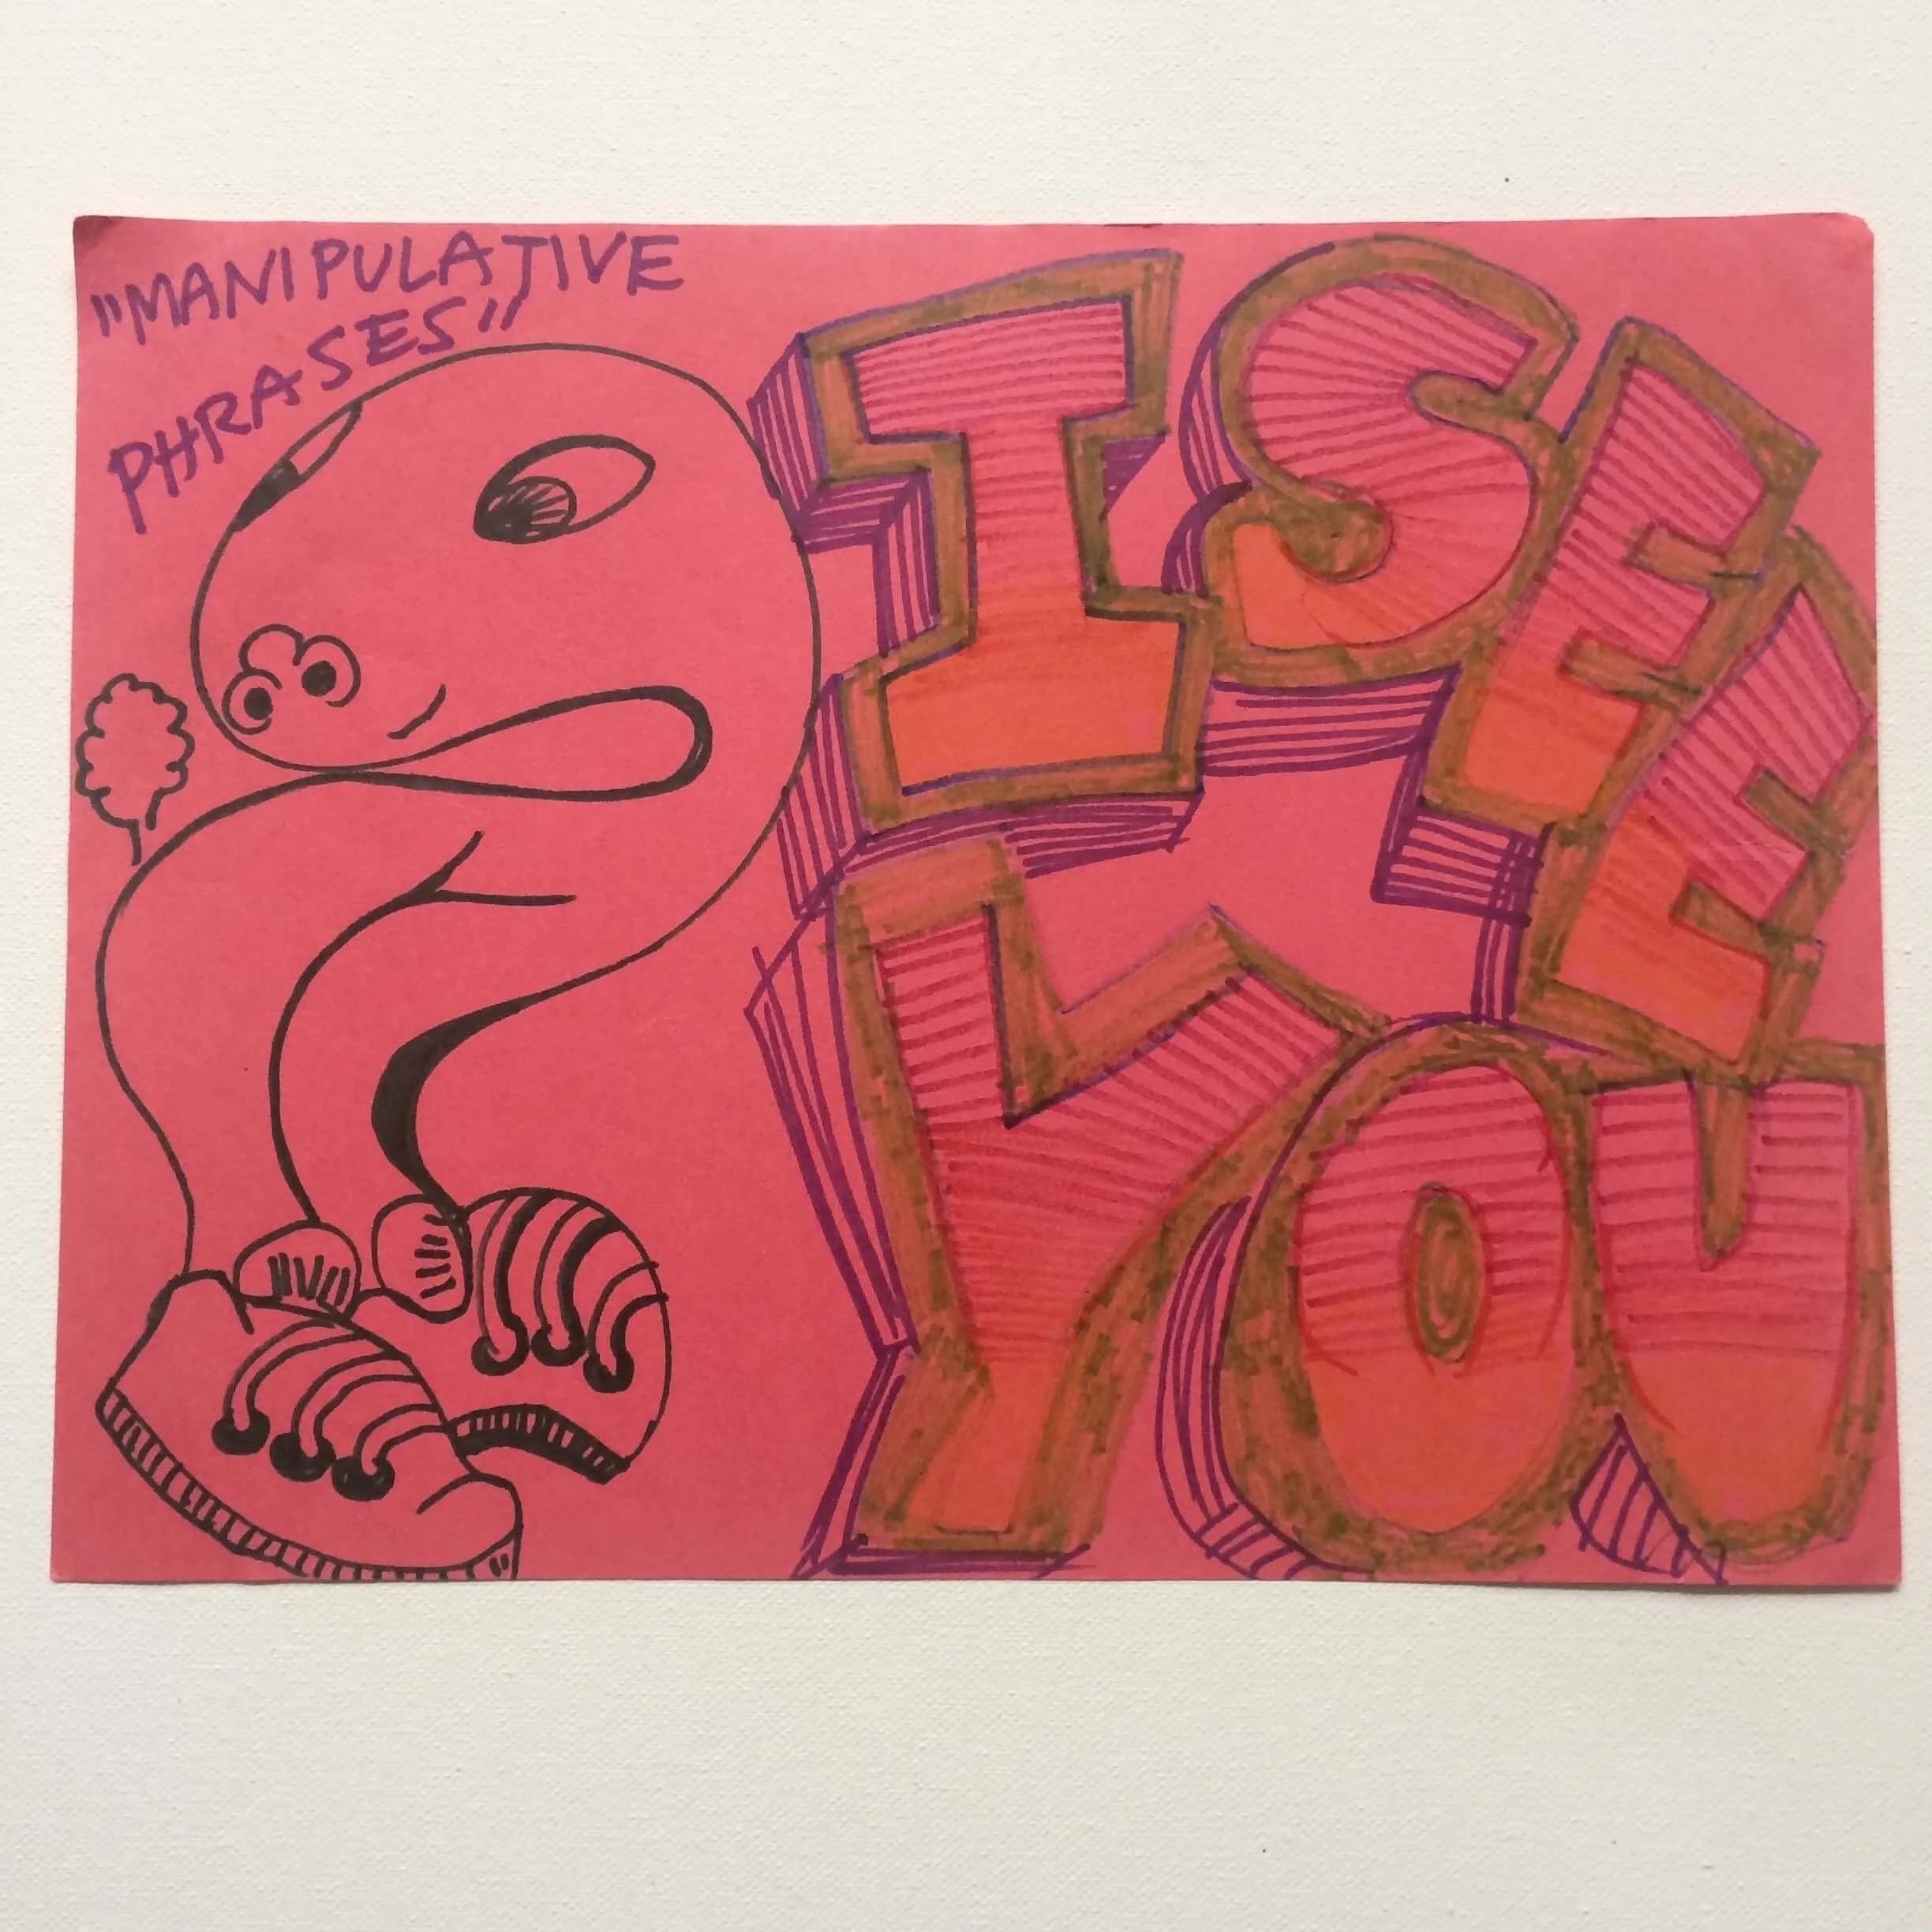 "MANIPULATIVE
PHRASES"
I SEE
YOU